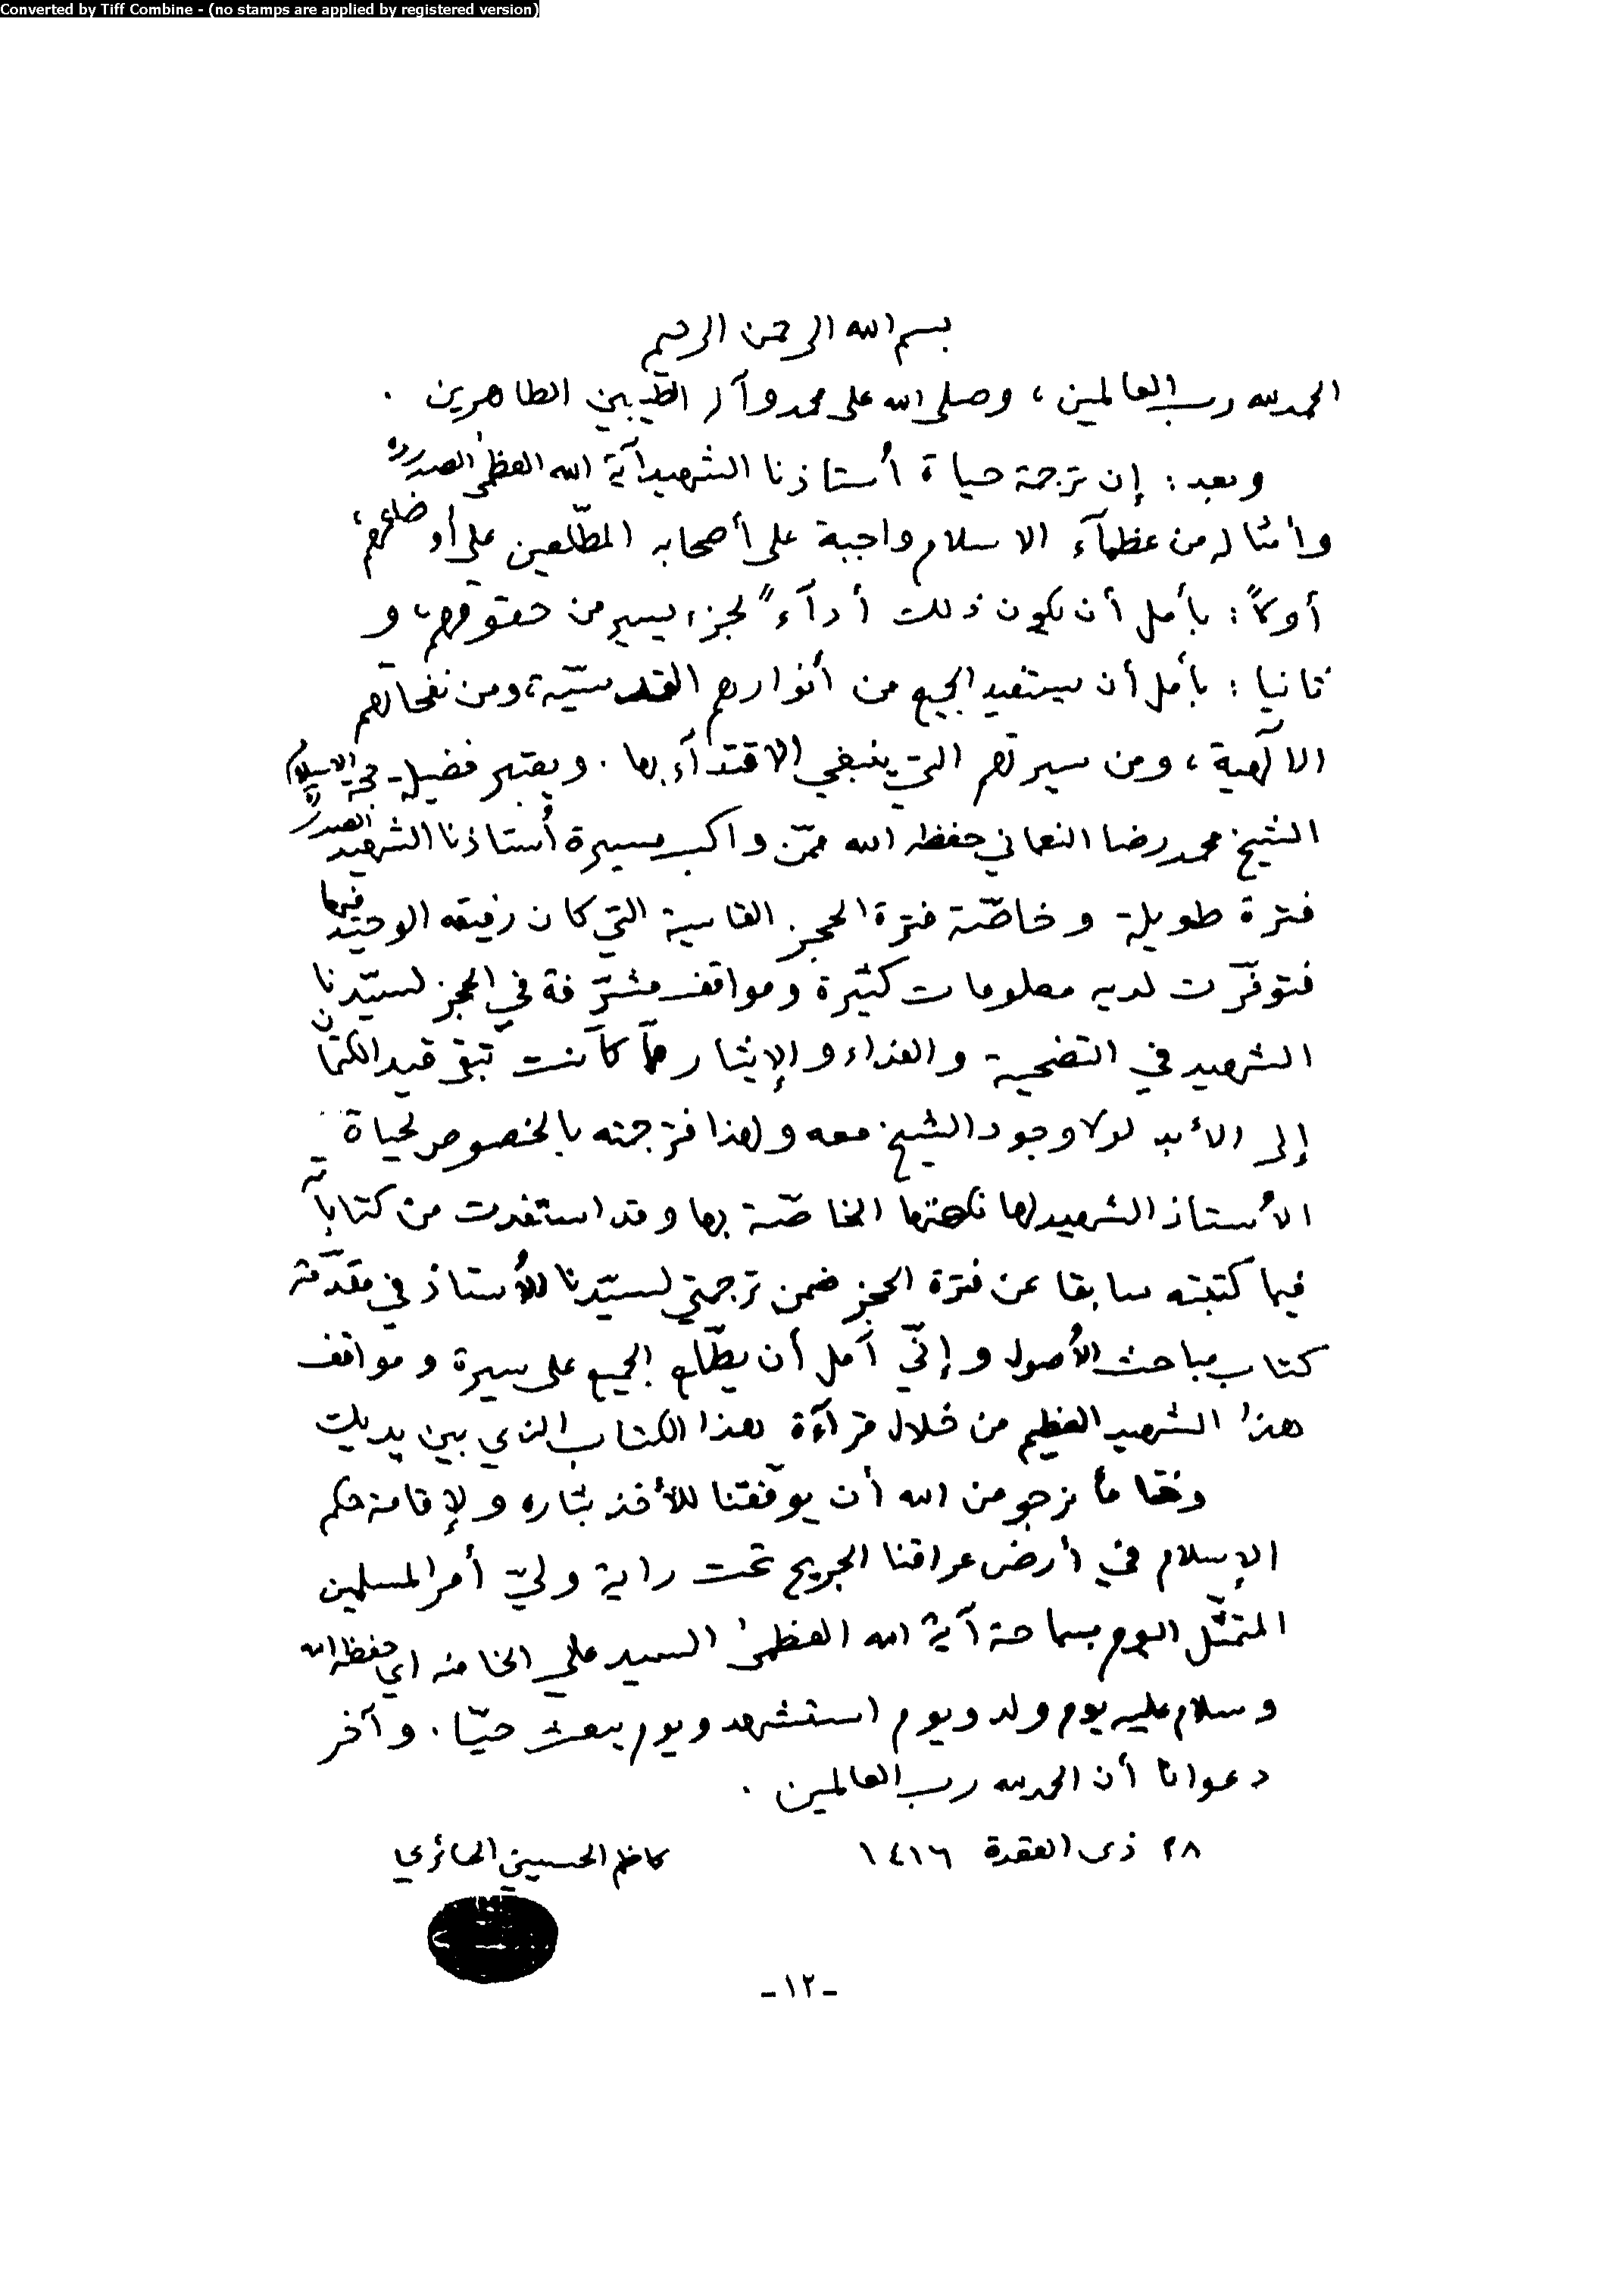 Converted by Tiff Combine - (no stamps are applied by registered version)
بسم الله الرحمن الرحيم
الحمد لله رب العالمين ، وصلى الله على محمد وآله الطيّبين الطاهرين .
وبعد : إن ترجمة حياة أُستاذنا الشهيد آية الله العظمىٰ الصدر ره
وأمثاله من عظمآء الاسلام واجبة على أصحابه المطّلعين على أوضاعهم ،
أولاً : بأمل أن يكون ذلك أدآءً لجزء يسير من حقوقهم ، و
ثانيا : بأمل أن يستفيد الجميع من أنوارهم القدسيّة ، ومن نفحاتهم
الالٓهية ، ومن سيرتهم التي ينبغي الاقتدآء بها . ويعتبر فضيلة حجة الاسلام
الشيخ محمد رضا النعماني حفظه الله ممّن واكب مسيرة أُستاذنا الشهيد الصدر ره
فترة طويلة وخاصّة فترة الحجز القاسية التي كان رفيقه الوحيد فيها
فتوفّرت لديه معلومات كثيرة ومواقف مشرّفة في الحجز لسيّدنا
الشهيد في التضحية والفداء والإيثار ممّا كانت تبقى قيد الكتمان
إلى الأبد لولا وجود الشيخ معه ولهذا فترجمته بالخصوص لحياة
الأُستاذ الشهيد لها نكهتها الخاصّة بها وقد استفدت من كتاباته
فيما كتبته سابقا عن فترة الحجز ضمن ترجمتي لسيّدنا الأُستاذ في مقدّمة
كتاب مباحث الأُصول وإنّي آمل أن يطّلع الجميع على سيرة ومواقف
هذا الشهيد العظيم من خلال قرآءة هذا الكتاب الذي بين يديك
وختاماً نرجو من الله أن يوفّقنا للأخذ بثاره ولإقامة حكم
الإسلام في أرض عراقنا الجريح تحت راية وليّ أمر المسلمين
المتمثّل اليوم بسماحة آية الله العظمىٰ السيد علي الخامنه اي حفظه الله
وسلام عليه يوم ولد ويوم استشهد ويوم يبعث حيّا . وآخر
دعوانا أن الحمد لله رب العالمين .
٢٨ ذى القعدة ١٤١٦ كاظم الحسيني الحائري
-١٢-